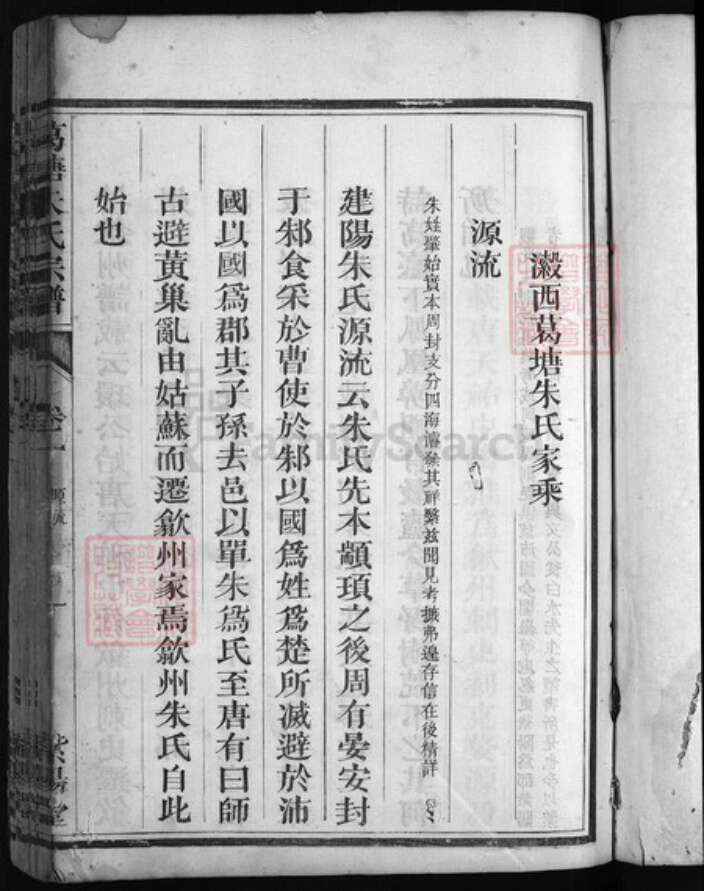 瀫西葛塘朱氏家乘
源流
朱姓肇始實本周封支分四海濬條其祥繄茲聞見考摭弗遑存信在後精詳
建陽朱氏源流云朱氏先本顓頊之後周有晏安封
于邾食采於曹使於邾以國爲姓爲楚所滅避於沛
國以國爲郡其子孫去邑以單朱爲氏至唐有曰師
古避黃巢亂由姑蘇而遷歙州家焉歙州朱氏自此
始也
葛塘朱氏宗譜
卷一
源流
一
紫陽堂
FamilySearch